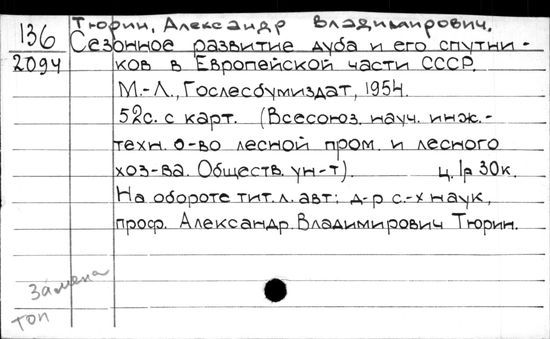 136
2094
Тюрин, Александр Владимирович.
Сезонное развитие дуба и его спутни-
ков в Европейской части СССР.
М.-Л., Гослесбумиздат, 1954.
52с. с карт. (Всесоюз. науч. инж.-
техн. о-во лесной пром. и лесного
хоз-ва. Обществ. ун-т). ц. 1р 30к.
На обороте тит. л. авт: д-р с.-х наук,
проф. Александр Владимирович Тюрин.
Замена
топ